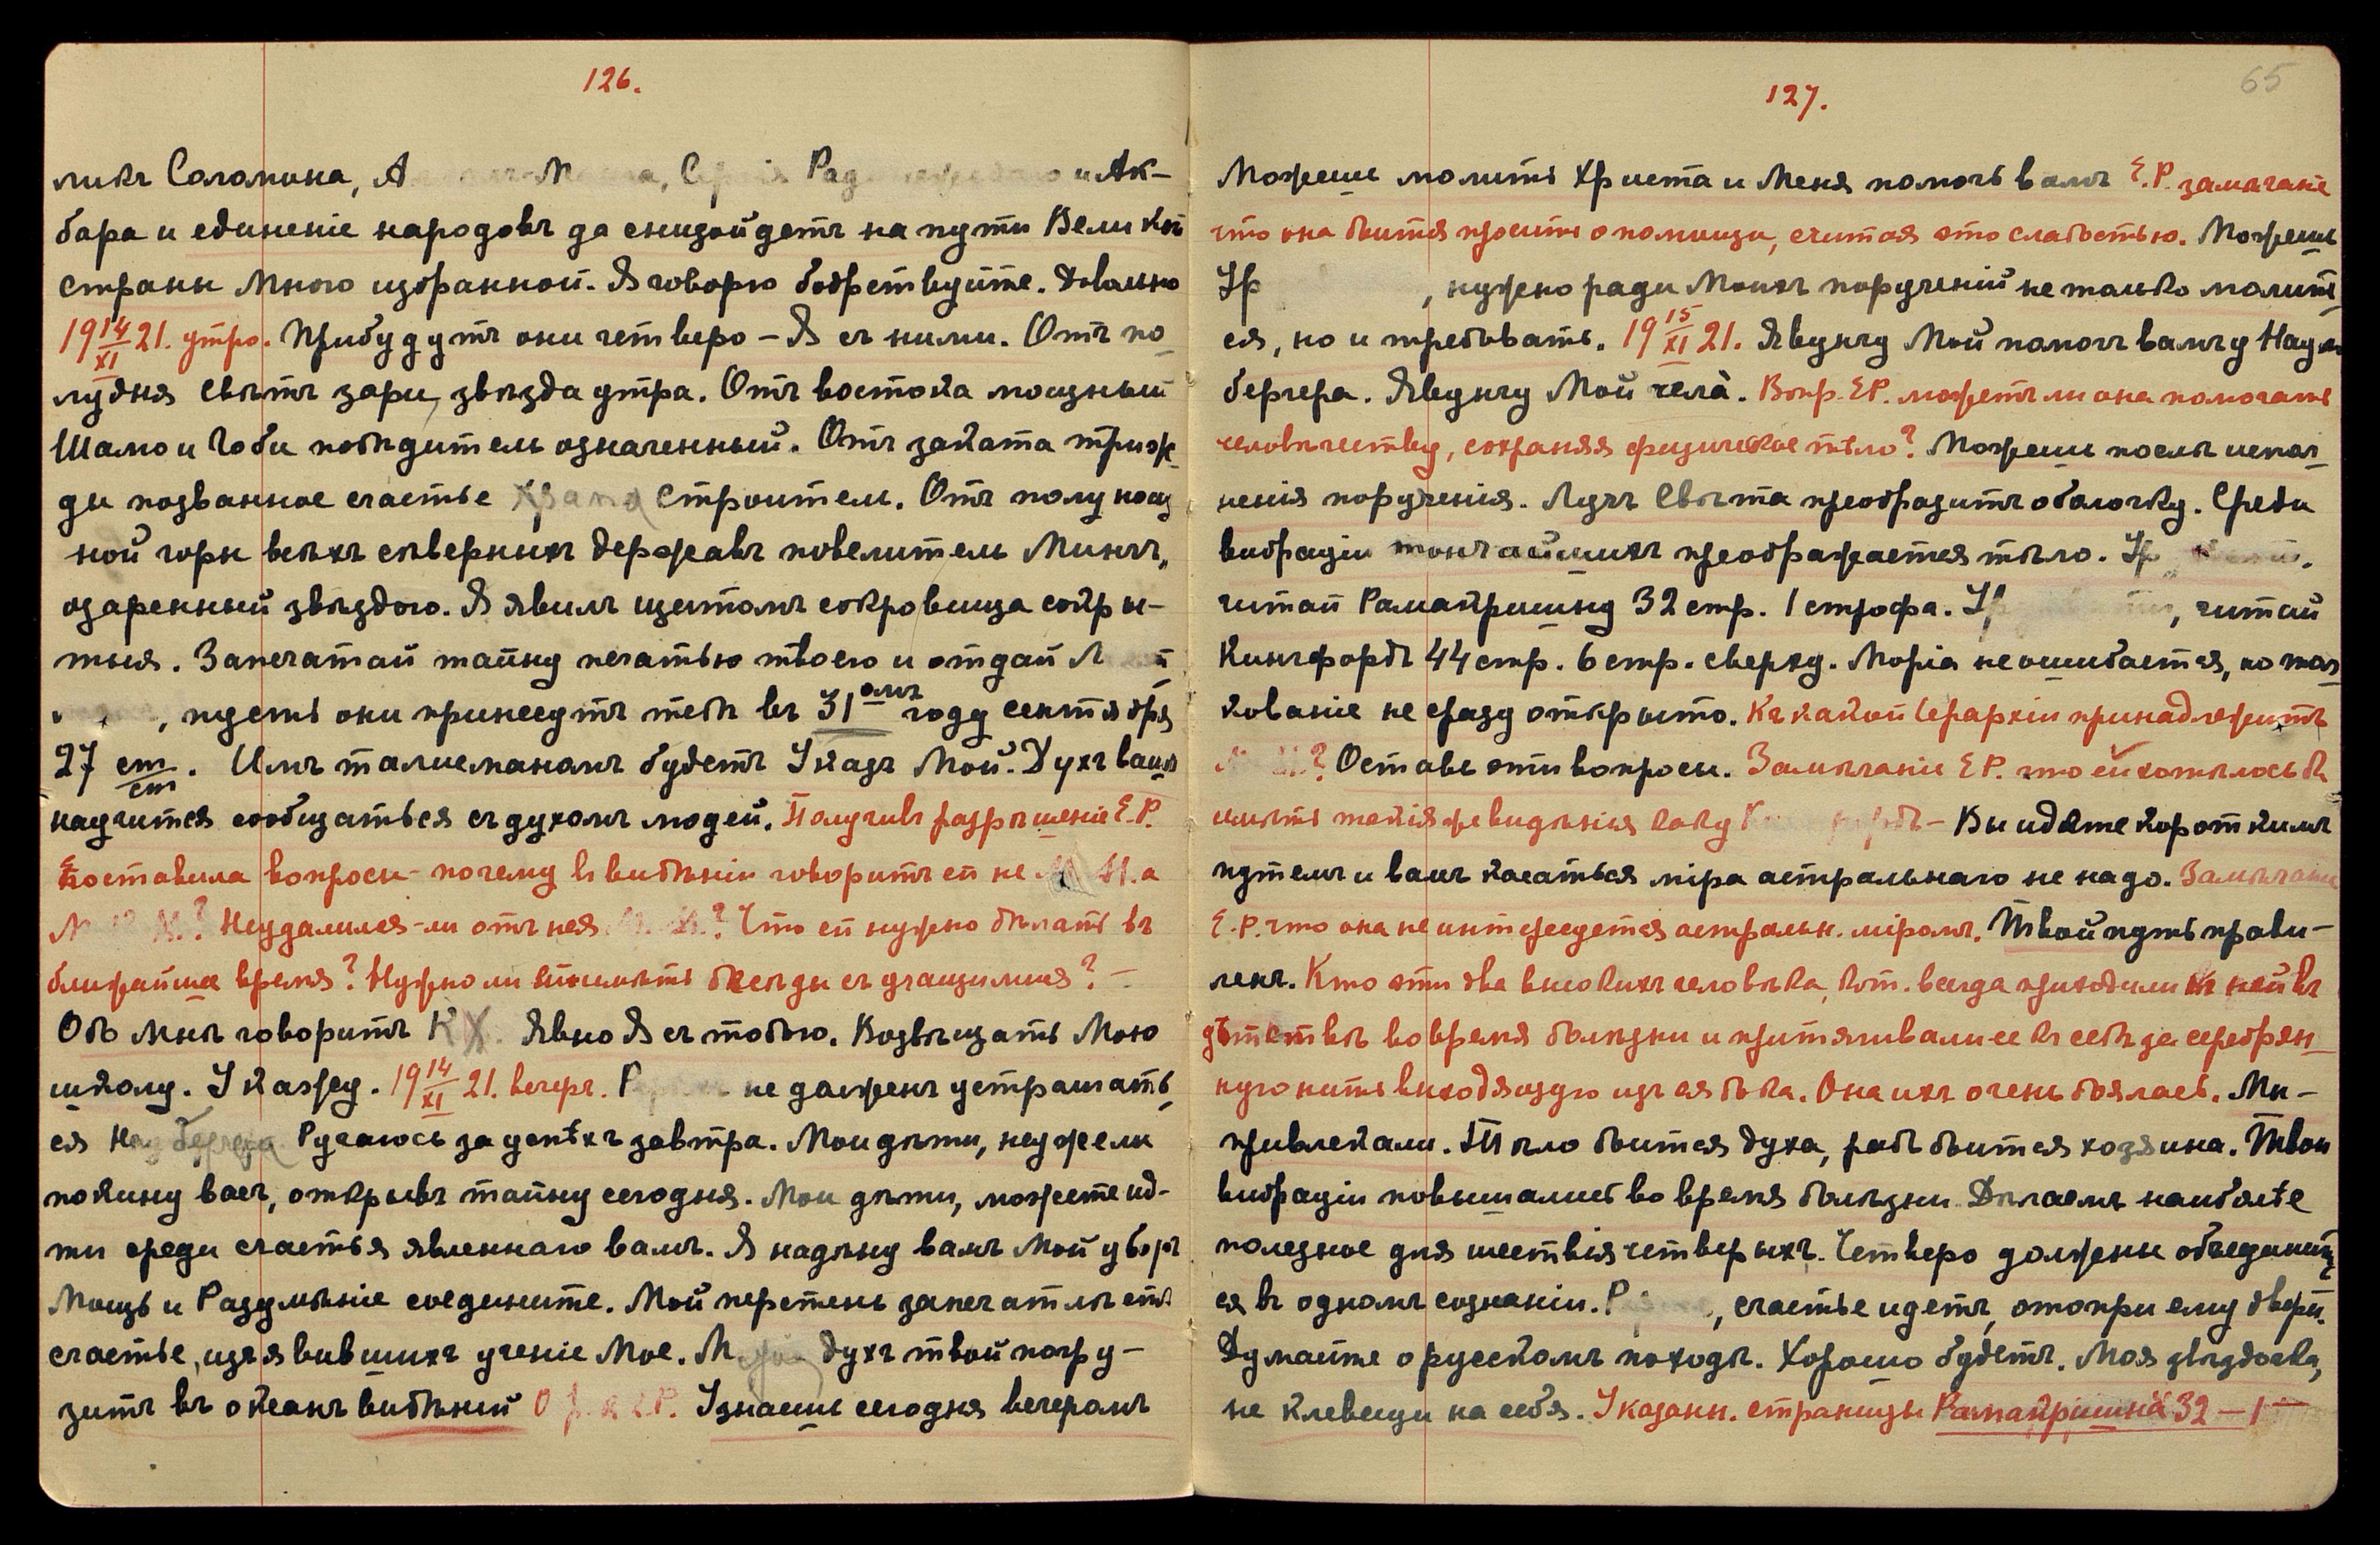 126.
ликъ Соломона, А и Ак-
бара и единеніе народовъ да снизойдетъ на пути Великой
страны Мною избранной. Я говорю бодрствуйте. Довольно
19 14/XI 21. утро. Прибудутъ они четверо – Я съ ними. Отъ по-
лудня свѣтъ зари, звѣзда утра. Отъ востока мощный
Шамо и Гоби побѣдитель означенный. Отъ заката триж-
ды позванное счастье Храма строитель. Отъ полунощ
ной горы всѣхъ сѣверныхъ державъ повелитель Мингъ,
озаренный звѣздою. Я явилъ щитомъ сокровища сокры-
тыя. Запечатай тайну печатью твоею и отдай
, пусть они принесутъ тебѣ въ 31омъ году сентября
27 ст/ст. Имъ талисманомъ будетъ Указъ Мой. Духъ вашъ
научится сообщаться съ духомъ людей. Получивъ разрѣшеніе Е.Р.
поставила вопросы – почему въ видѣніи говоритъ ей не М. М. а
М.? Не удалился-ли отъ нея М. М.? Что ей нужно дѣлать въ
ближайшее время? Нужно ли имѣть бесѣды съ учащимися? –
Обо Мнѣ говоритъ К Х. Явно Я съ тобою. Возвѣщать Мою
школу. Укажу. 19 14/XI 21. вечеръ. не долженъ устрашать
ся Наумбергера Ручаюсь за успѣхъ завтра. Мои дѣти, неужели
покину васъ, открывъ тайну сегодня. Мои дѣти, можете ид-
ти среди счастья явленнаго вамъ. Я надѣну вамъ Мой уборъ
Мощь и Разумѣніе соедините. Мой перстень запечатлѣетъ
счастье, изъявившихъ ученіе Мое. духъ твой погру-
зитъ въ океанъ видѣній Узнаешь сегодня вечеромъ
65
127.
Можешь молить Христа и Меня помочь вамъ Е.Р. замѣчаніе
что она боится просить о помощи, считая это слабостью. Можешь
Ур , нужно ради Моихъ порученій не только молить
ся, но и требовать. 19 15/XI 21. Явунгу Мой помочь вамъ у Наум
бергера. Явунгу Мой чела̀. Вопр. ЕР. можетъ ли она помогать
человѣчеству, сохраняя физическое тѣло? Можешь послѣ испол-
ненія порученія. Лучъ Свѣта преобразитъ оболочку. Среди
вибрацій тончайшихъ преображается тѣло. Ур
читай Рамакришну 32 стр. 1 строфа. Ур , читай
Кингфордъ 44 стр. 6 стр. сверху. Моріа не ошибается, но тол-
кованіе не сразу открыто. Къ какой Іерархіи принадлежитъ
М. М.? Оставь эти вопросы. Замѣчаніе Е Р. что ей хотѣлось бы
имѣть такія же видѣнія какъ у – Вы идете короткимъ
путемъ и вамъ касаться міра астральнаго не надо. Замѣчаніе
Е.Р. что она не интересуется астральн. міромъ. Твой путь прави-
ленъ. Кто эти два высокихъ человѣка, кот. всегда приходили къ ней въ
дѣтствѣ во время болѣзни и притягивали ее къ себѣ за серебрян-
ную нить выходящую изъ ея бока. Она ихъ очень боялась. Мы –
привлекали. Тѣло боится духа, рабъ боится хозяина. Твои
вибраціи повышались во время болѣзни. Дѣлаемъ наиболѣе
полезное для шествія четверыхъ. Четверо должны объединить
ся въ одномъ сознаніи. , счастье идетъ, отопри ему двери.
Думайте о русскомъ походѣ. Хорошо будетъ. Моя звѣздочка,
не клевещи на себя. Указанн. страницы Рамакришна 32 – 1 –